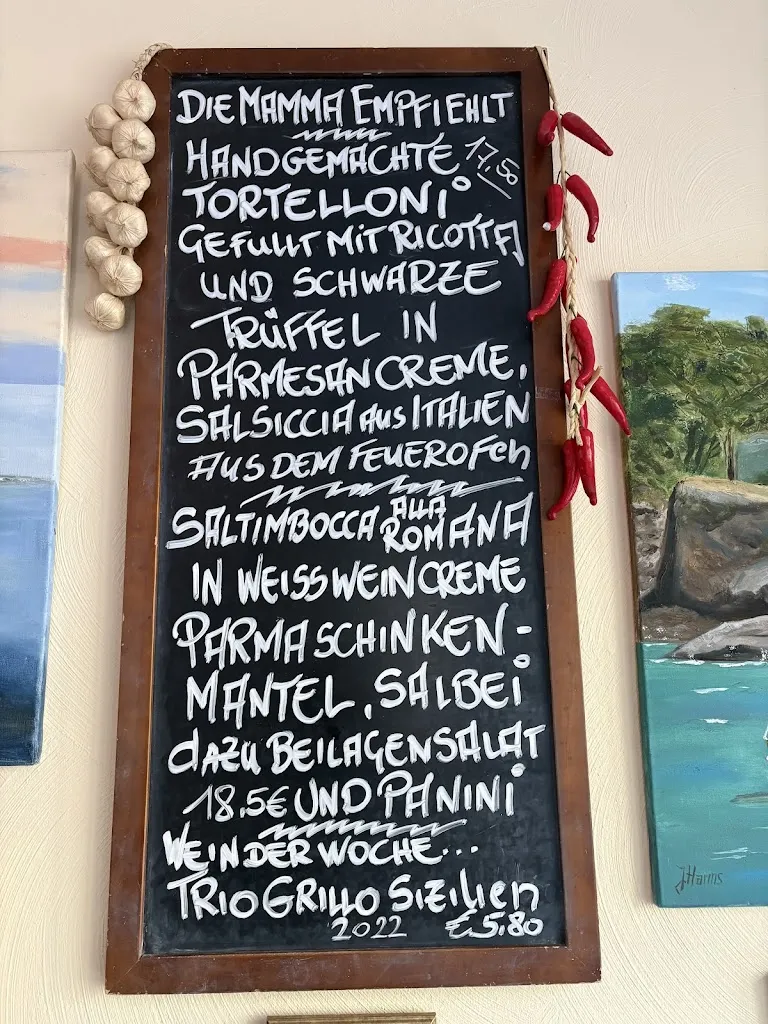 DIE MAMMA EMPFIEHLT
HANDGEMACHTE 17,50
TORTELLONI
GEFULLT MIT RICOTTA
UND SCHWARZE
TRÜFFEL IN
PARMESANCREME,
SALSICCIA AUS ITALIEN
AUS DEM FEUEROFEN
SALTIMBOCCA ALLA ROMANA
IN WEISSWEINCREME
PARMASCHINKEN-
MANTEL, SALBEI
DAZU BEILAGENSALAT
18,5€ UND PANINI
WEIN DER WOCHE...
TRIO GRILLO SIZILIEN
2022 €5,80
J.Harms